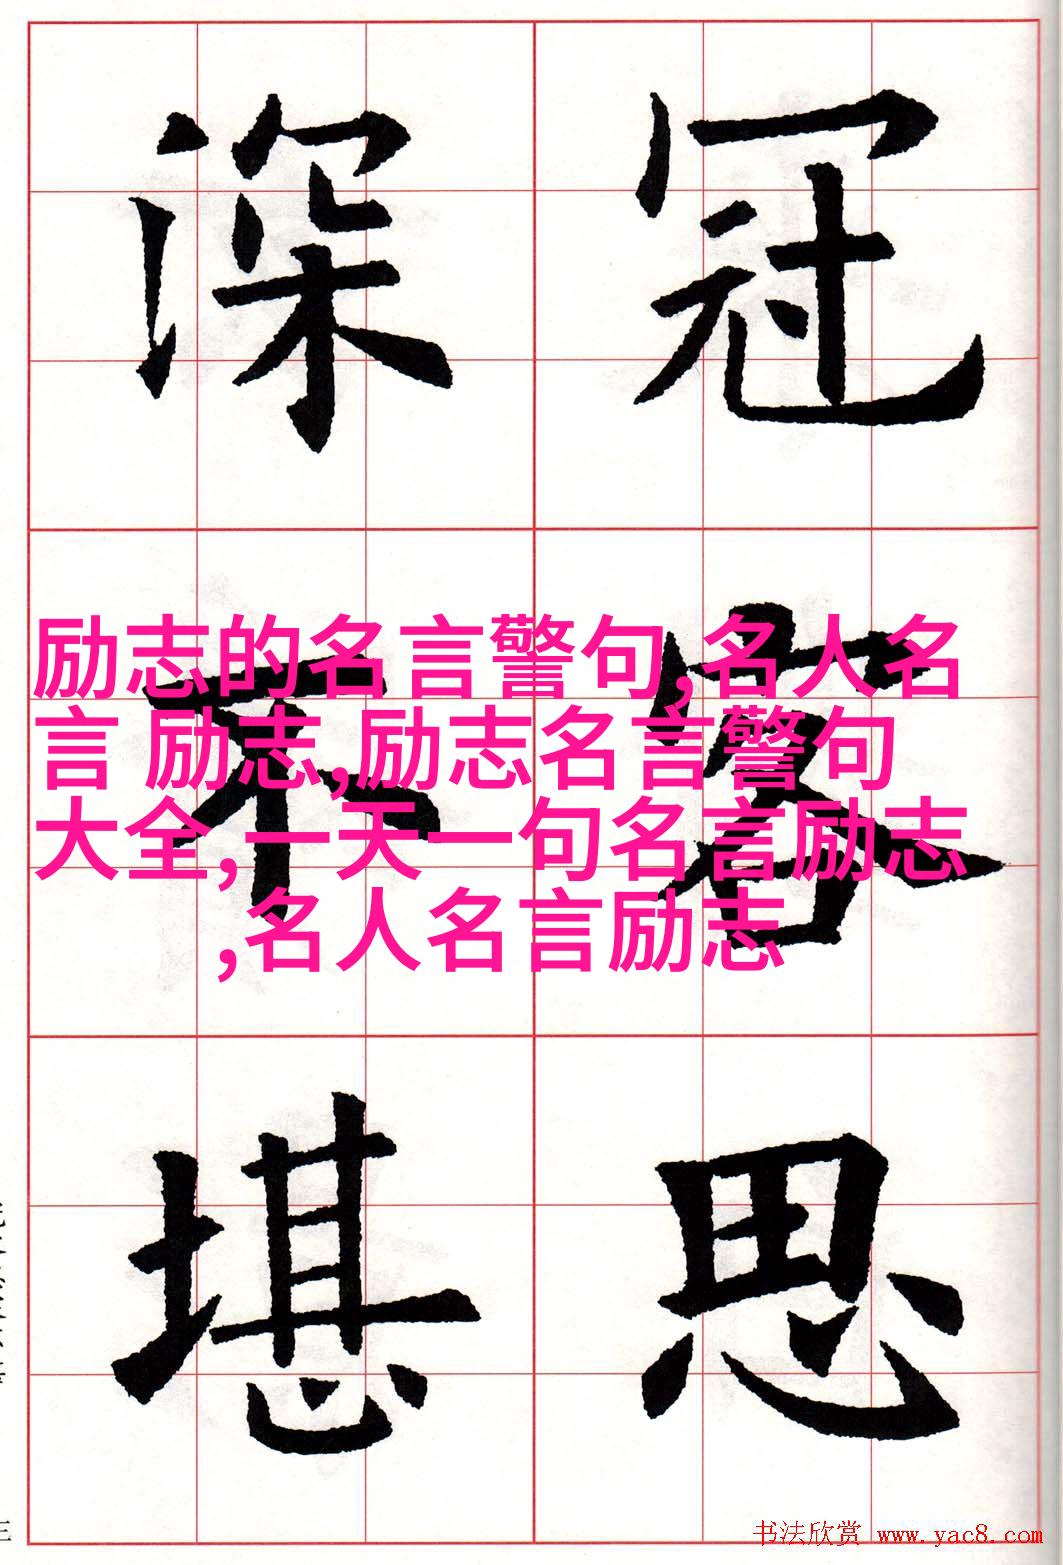 冠客思
深不堪
励志的名言警句,名人名
言 励志,励志名言警句
大全,一天一句名言励志
,名人名言励志
书法欣赏 www.yac8.com